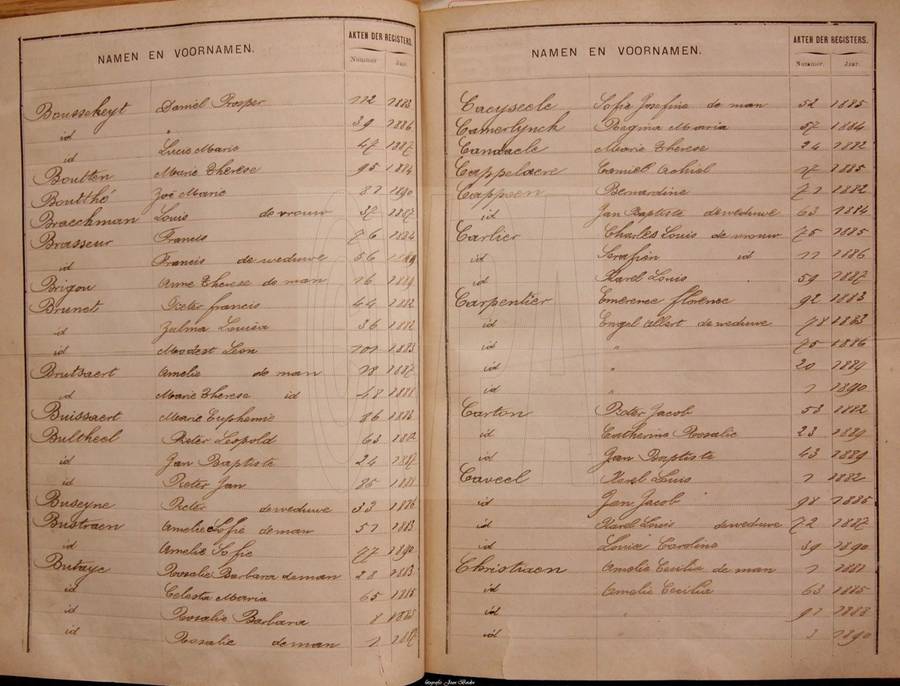 NAMEN EN VOORNAMEN. AKTEN DER REGISTERS.
Nummer Jaar.
Bousscheyt Daniel Prosper 112 1883
id " 39 1886
id Lucie Marie 47 1887
Boutten Marie Therese 95 1884
Boutthé Zoë Marie 81 1890
Braeckman Louis de vrouw 37 1887
Brasseur Francis 76 1884
id Francis de weduwe 56
Brigou Anne Therese de man 16 1884
Brunet Pieter francis 44 1882
id Zulma Louisa 36 1882
id Modest Leon 101 1883
Brutsaert Amelie de man 18 1887
id Marie Therese id 48 1888
Buissaert Marie Euphemie 86 1883
Bultheel Pieter Leopold 63
id Jan Baptiste 24
id Pieter Jan 85
Buseyne Pieter de weduwe 33 1886
Bustraen Amelie Sofie de man 51 1883
id Amelie Sofie 77 1890
Butaye Rosalie Barbara de man 28 1883
id Celesta Maria 65
id Rosalie Barbara 8
id Rosalie de man 1
NAMEN EN VOORNAMEN. AKTEN DER REGISTERS.
Nummer. Jaar.
Caeyseele Sofie Josefine de man 52 1885
Camerlynck Regina Maria 57 1884
Candaele Marie Therese 24 1882
Cappelaere Camiel Achiel 17 1885
Cappoen Bernardine 71 1882
id Jan Baptiste de weduwe 63 1884
Carlier Charles Louis de vrouw 75 1885
id Serafien id 11 1886
id Karel Louis 59 1887
Carpentier Emerence florence 92 1883
id Engel Albert de weduwe 78 1883
id " 75 1886
id " 20 1889
id " 1 1890
Carton Pieter Jacob 53 1882
id Catherina Rosalie 23 1889
id Jan Baptiste 43 1889
Caveel Karel Louis 1 1882
id Jan Jacob 98 1885
id Karel Louis de weduwe 72 1887
id Louise Caroline 39 1890
Christiaen Amelie Cecilie de man 1
id Amelie Cecilie 63 1885
id " 91 1888
id " 3 1890